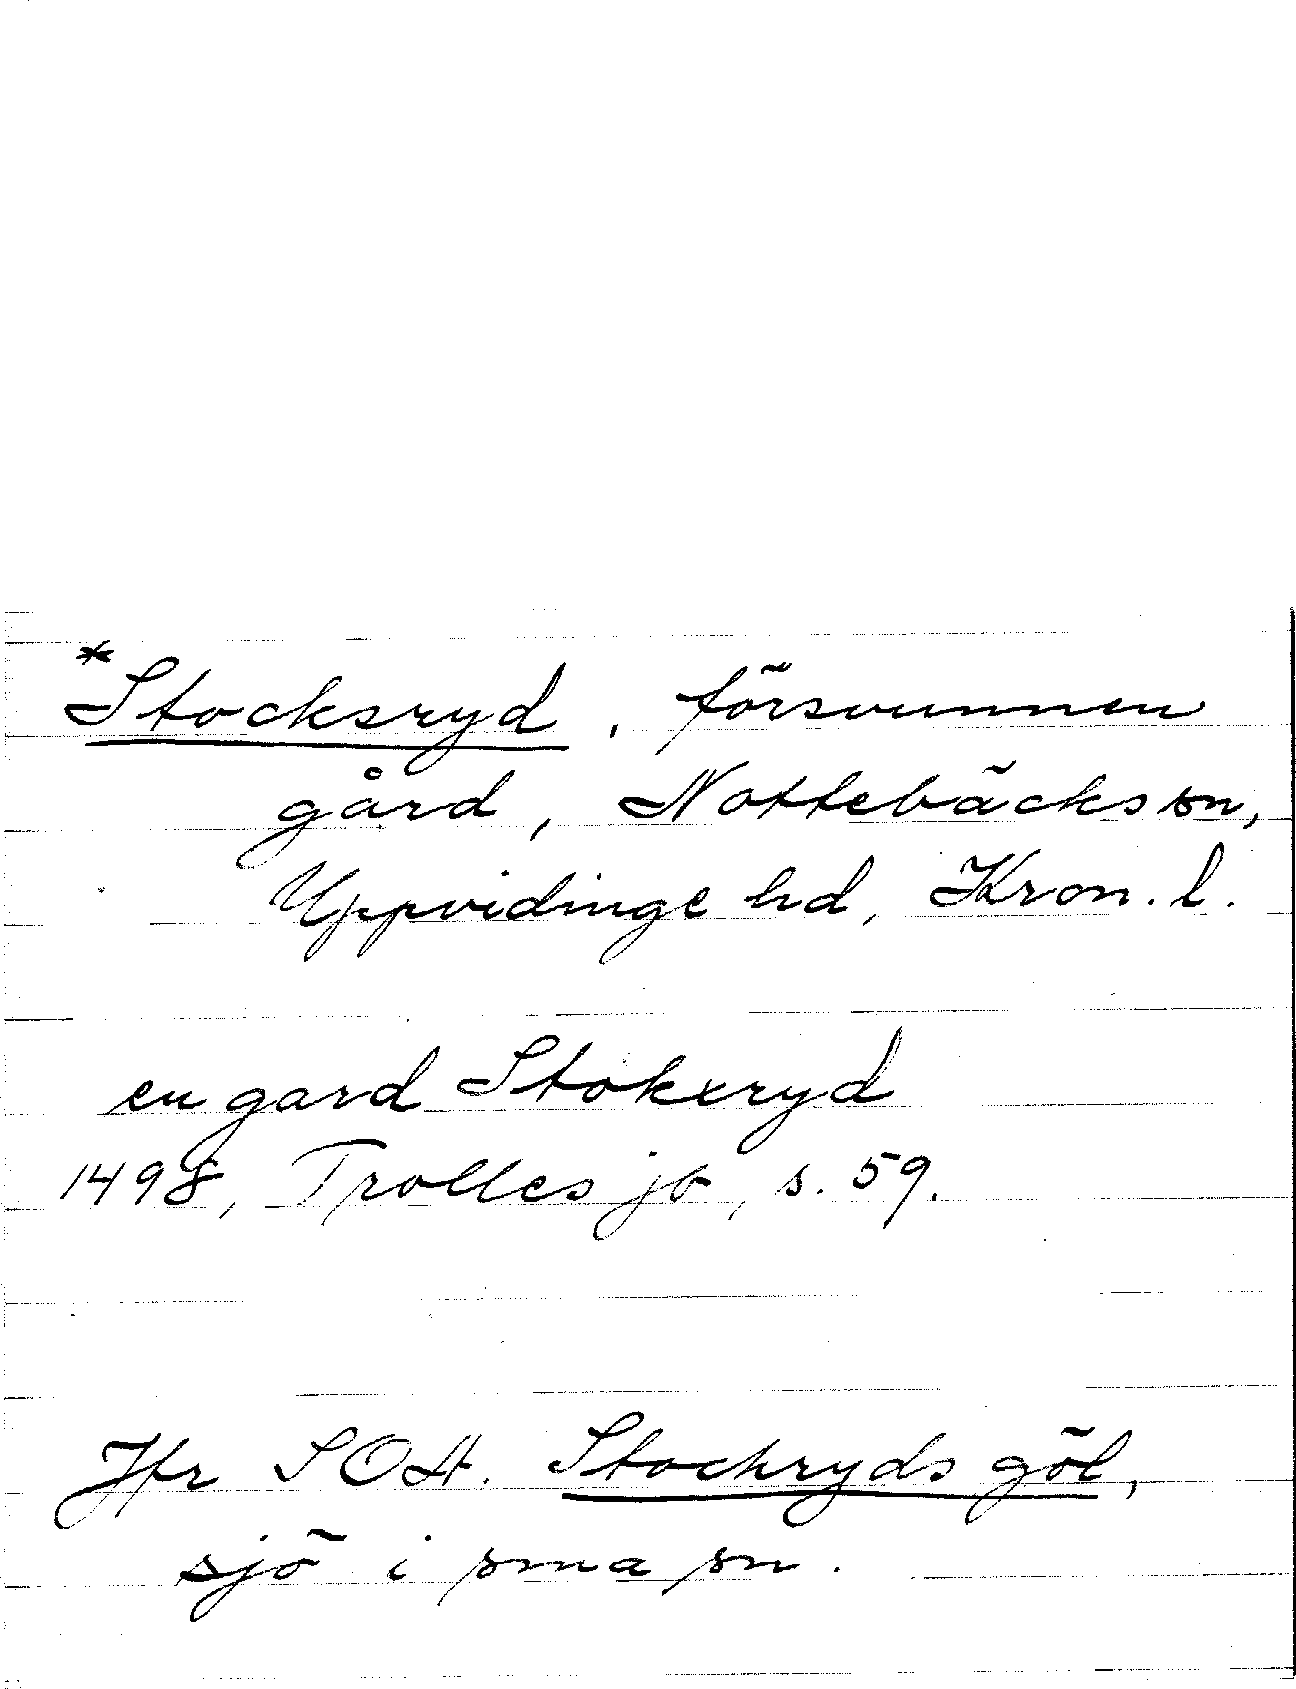 *Stocksryd, försvunnen
gård, Nottebäcks sn,
Uppvidinge hd, Kron. l.
en gard Stokxryd
1498, Trolles jb, s. 59.
Jfr SOH. Stockryds göl,
sjö i sma sn.